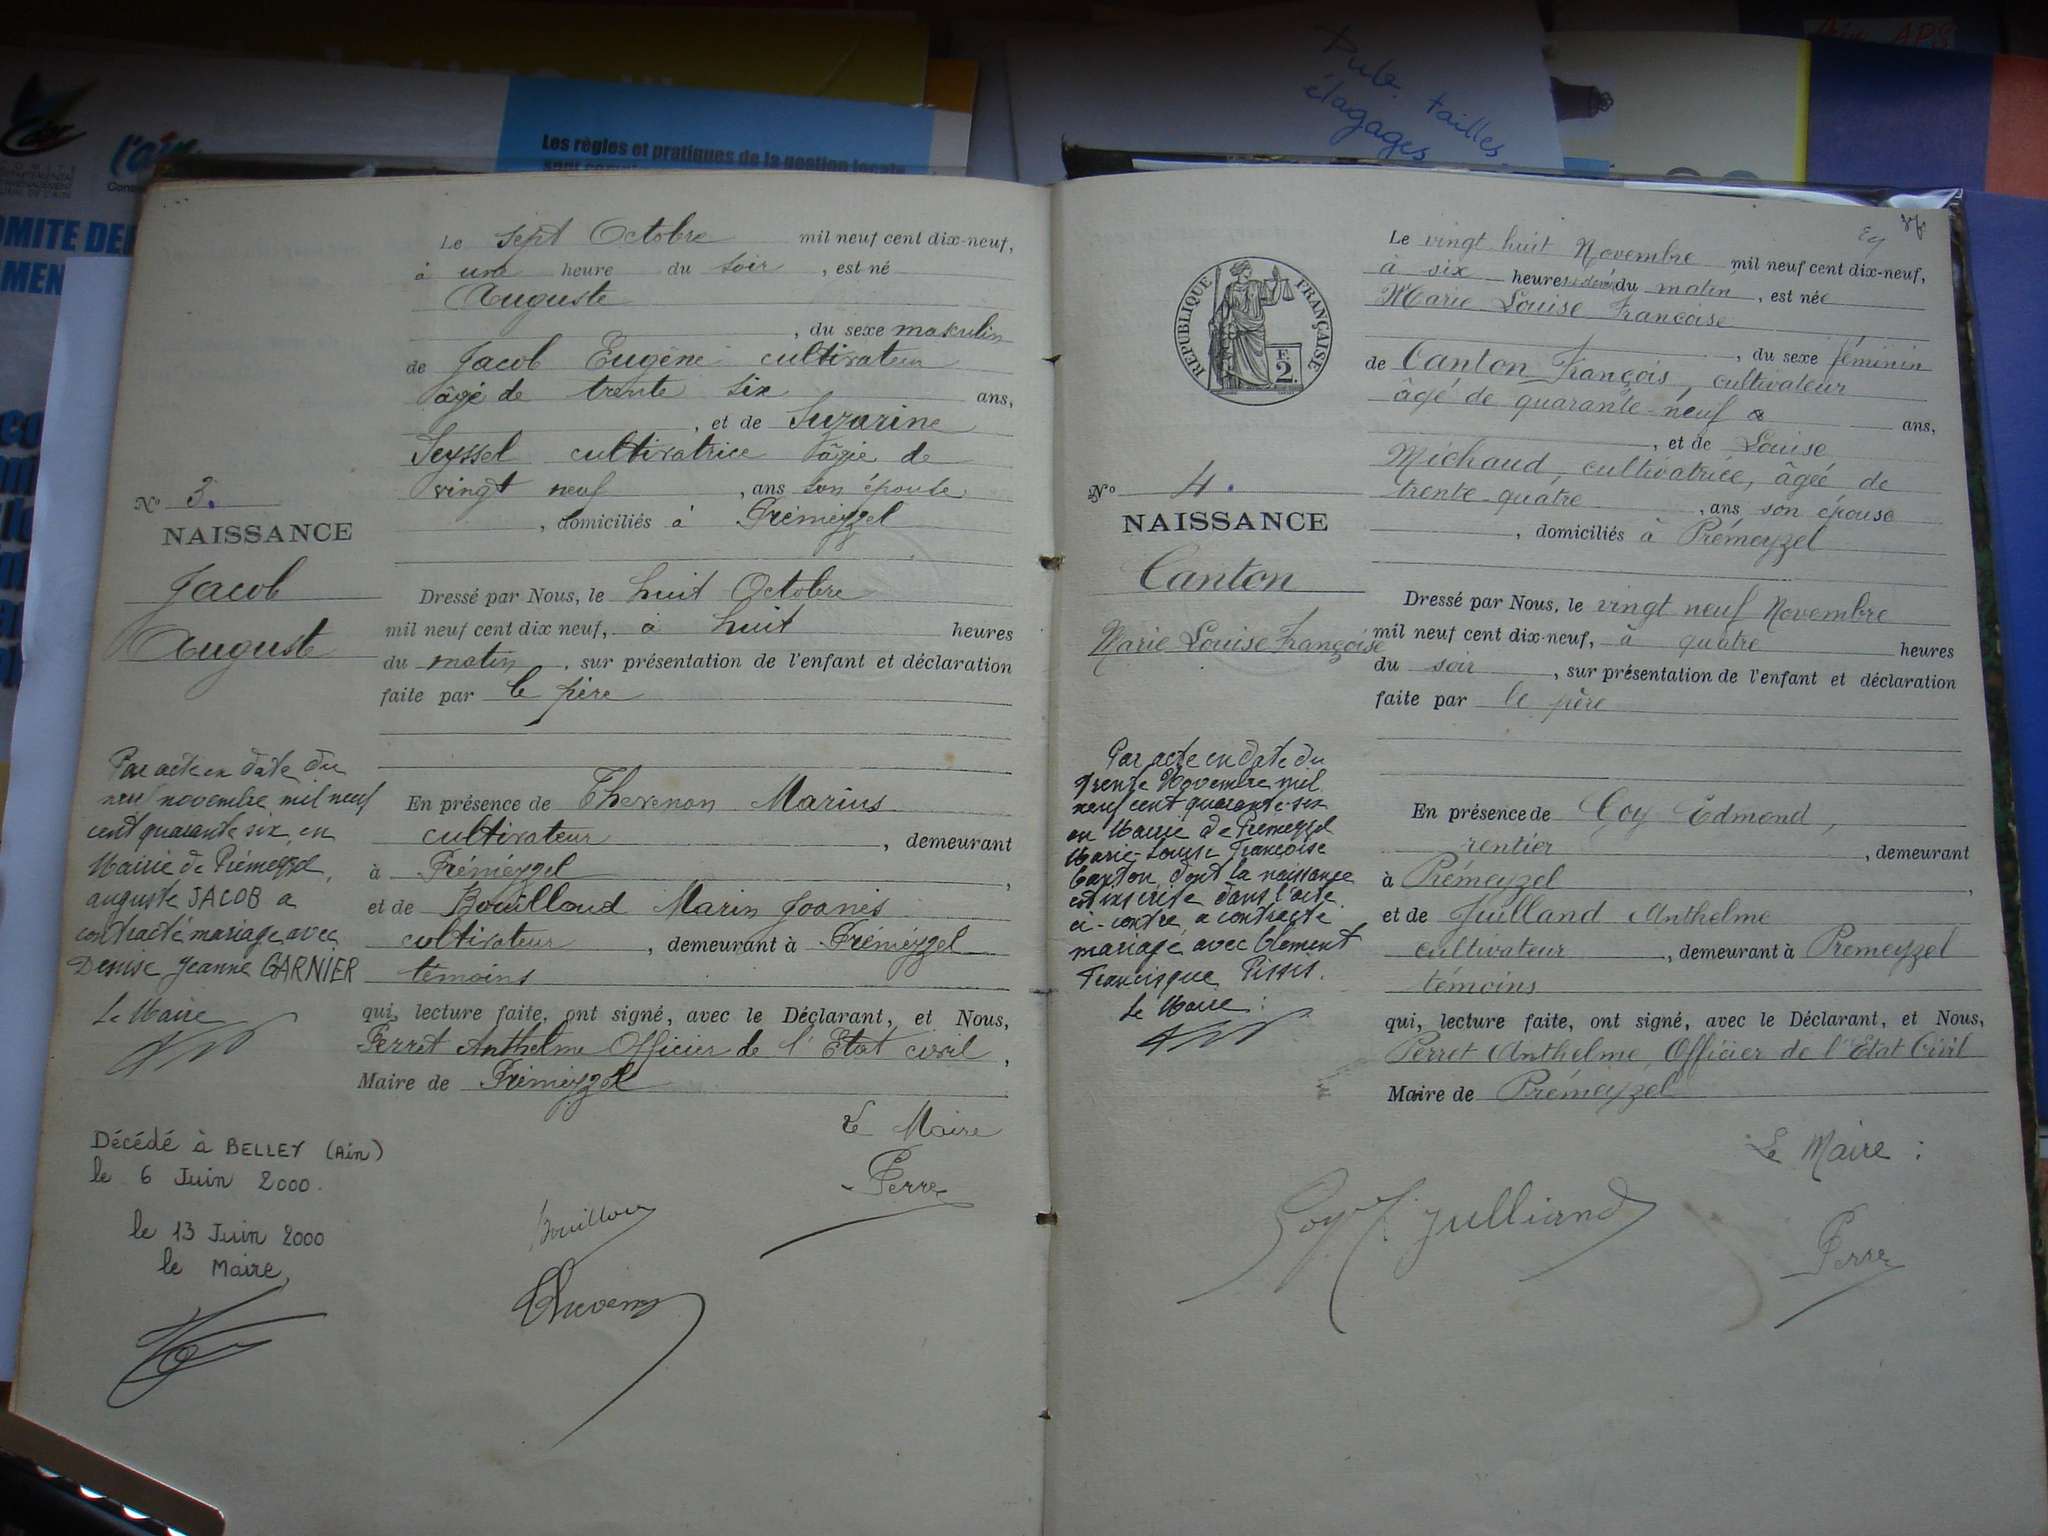 l'ain
Les règles et pratiques de la gestion locale
Pub. tailles
élagages
Le sept Octobre mil neuf cent dix-neuf,
à une heure du soir, est né
Auguste
, du sexe masculin
de Jacob Eugène cultivateur
âgé de trente six ans,
, et de Suzarine
Seyssel cultivatrice âgée de
vingt neuf, ans son épouse
, domiciliés à Prémeyzel
No 3.
NAISSANCE
Jacob
Auguste
Dressé par Nous, le huit Octobre
mil neuf cent dix neuf, à huit heures
du matin, sur présentation de l'enfant et déclaration
faite par le père
En présence de Thevenon Marius
cultivateur, demeurant
à Prémeyzel,
et de Bouilloud Marin Joanès
cultivateur, demeurant à Prémeyzel
témoins
qui, lecture faite, ont signé, avec le Déclarant, et Nous,
Perret Anthelme Officier de l'Etat civil,
Maire de Prémeyzel
Le Maire
Perret
Bouilloud
Thevenon
Par acte en date du
neuf novembre mil neuf
cent quarante six, en
Mairie de Prémeyzel,
auguste JACOB a
contracté mariage avec
Denise Jeanne GARNIER
Le Maire
Décédé à BELLEY (Ain)
le 6 Juin 2000.
le 13 Juin 2000
le Maire,
REPUBLIQUE FRANÇAISE
F.
2.
Le vingt huit Novembre mil neuf cent dix-neuf,
à six heures et demi du matin, est née
Marie Louise Françoise
, du sexe féminin
de Canton François, cultivateur
âgé de quarante-neuf ans,
, et de Louise
Michaud, cultivatrice, âgée de
trente-quatre, ans son épouse
, domiciliés à Prémeyzel
No 4.
NAISSANCE
Canton
Marie Louise Françoise
Dressé par Nous, le vingt neuf Novembre
mil neuf cent dix-neuf, à quatre heures
du soir, sur présentation de l'enfant et déclaration
faite par le père
En présence de Goy Edmond,
rentier, demeurant
à Prémeyzel,
et de Juilland Anthelme
cultivateur, demeurant à Prémeyzel
témoins
qui, lecture faite, ont signé, avec le Déclarant, et Nous,
Perret Anthelme, Officier de l'Etat Civil
Maire de Prémeyzel
Le Maire :
Goy J. Julliand
Perret
Par acte en date du
trente Novembre mil
neuf cent quarante-six
en Mairie de Prémeyzel
Marie-Louise Françoise
Canton, dont la naissance
est inscrite dans l'acte
ci-contre, a contracté
mariage avec Clément
Francisque Pissis.
Le Maire :